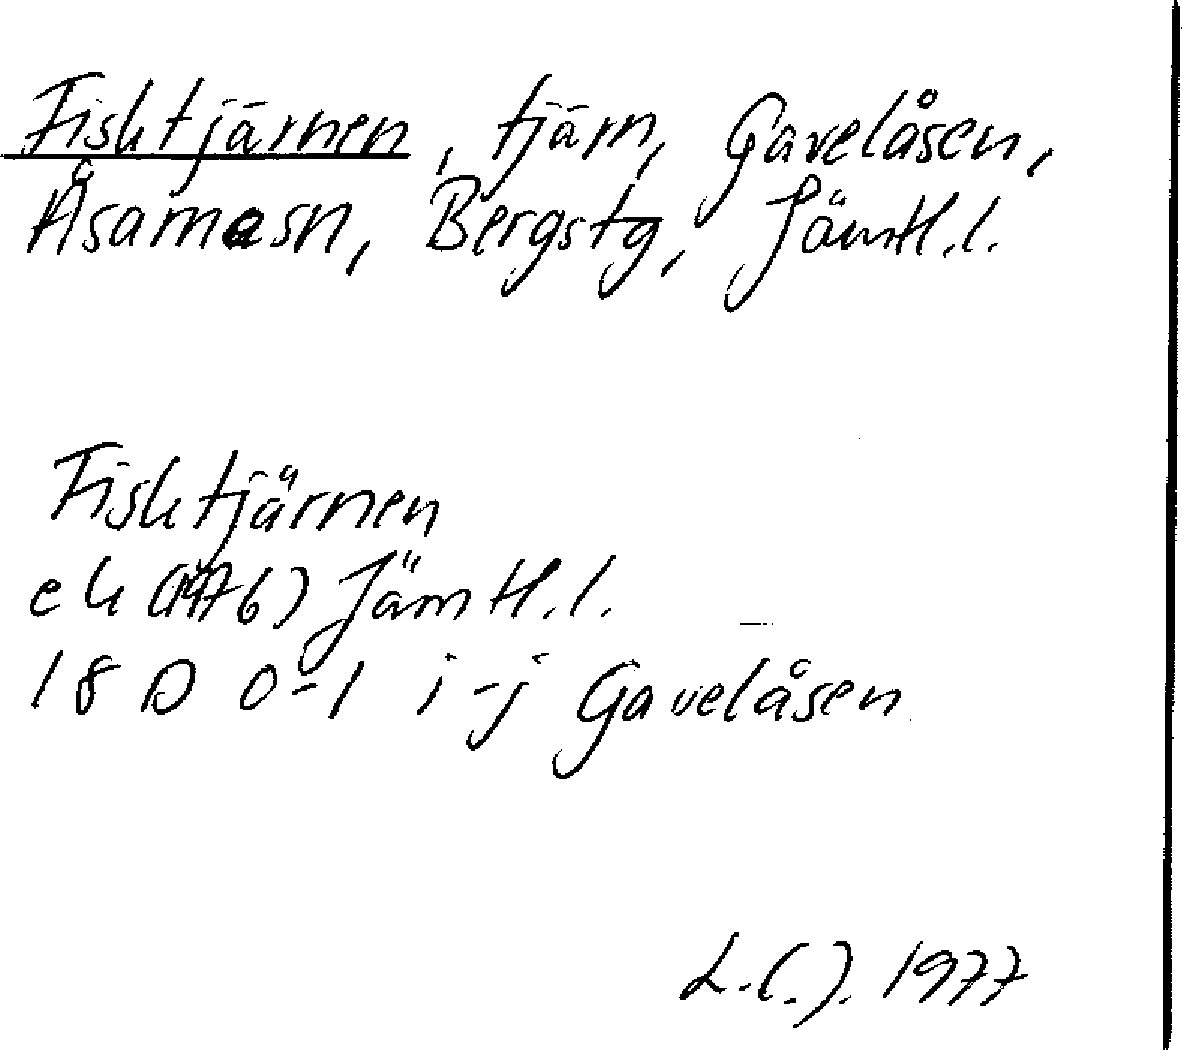 Fisktjärnen, tjärn, Gavelåsen,
Åsarnesn, Bergstg, Jämtl.l.
Fisktjärnen
ek (1976) Jämtl.l.
18 D 0-1 i-j Gavelåsen
L.(.). 1977